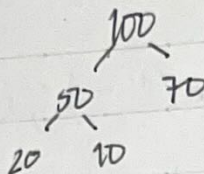 100
50 70
20 10